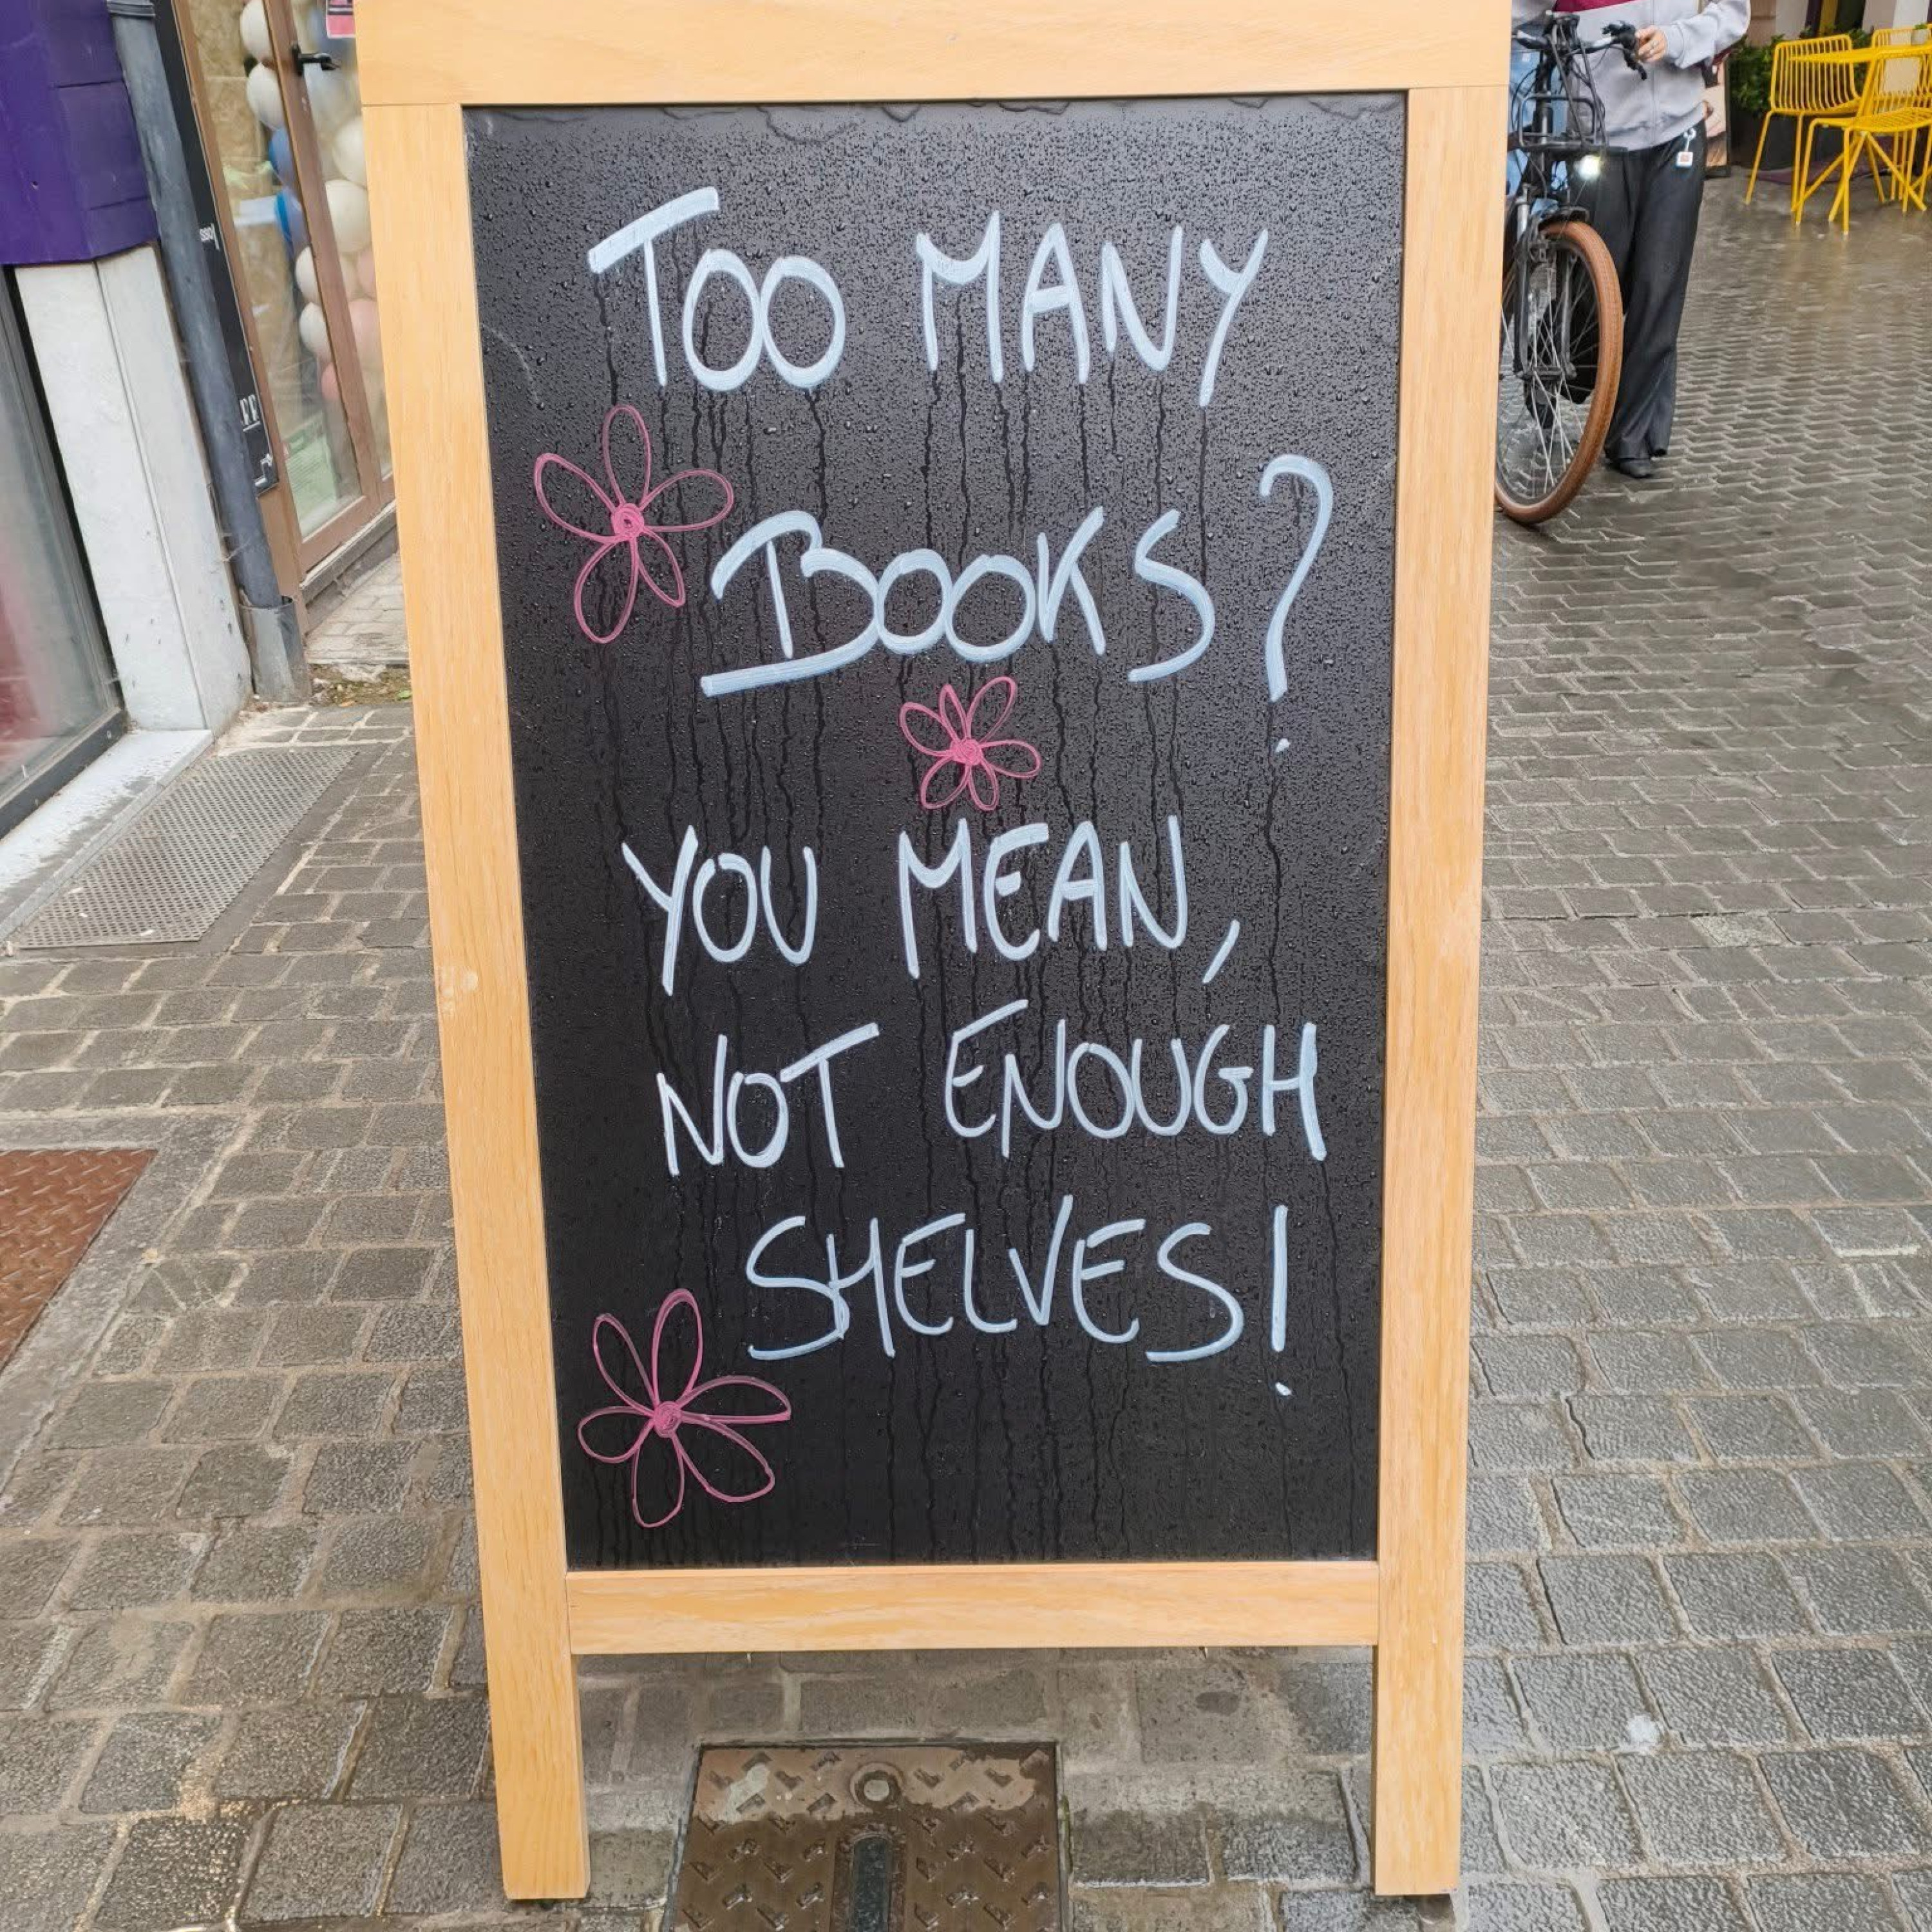 TOO MANY
BOOKS?
YOU MEAN,
NOT ENOUGH
SHELVES!